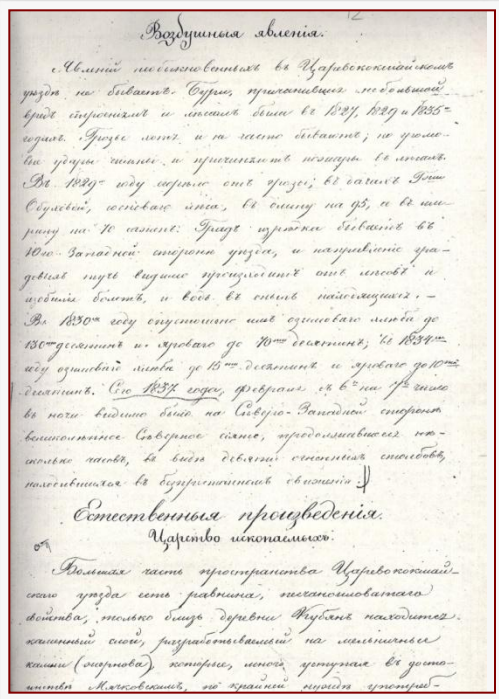 12
Воздушныя явленія.
Явленій необыкновенныхъ въ Царевококшайскомъ
уѣздѣ не бываетъ. Бури, причинившія небольшой
вредъ строеніямъ и лѣсамъ были въ 1827, 1829 и 1835
годахъ. Грозы хотя и не часто бываютъ; но громо-
вые удары и причиняютъ пожары въ лѣсахъ.
Въ 1829 году отъ грозы; въ дачахъ
Обуховой, сосноваго лѣса, въ длину на 95, а въ ши-
рину на 70 сажень: Градъ изрѣдка бываетъ въ
Юго-Западной сторонѣ уѣзда, и направленіе гра-
довыхъ тучъ видимо происходитъ отъ лѣсовъ и
изобилія болотъ, и водъ въ оныхъ находящихся. –
Въ 1830 году опустошено имъ озимоваго хлѣба до
130 десятинъ и яроваго до 70 десятинъ; въ 1834
году озимоваго хлѣба до 15 десятинъ и яроваго до 10
десятинъ. Сего 1837 года, Февраля съ 6 на 7 число
въ ночи видимо было на Сѣверо-Западной сторонѣ
великолѣпное Сѣверное сіяніе, продолжавшееся нѣ-
сколько часовъ, въ видѣ девяти огненныхъ столбовъ,
находившихся въ безпрестанномъ движеніи.
Естественныя произведенія.
Царство ископаемыхъ.
Большая часть пространства Царевококшай-
скаго уѣзда есть равнина, песчаноиловатаго
свойства, только близь деревни находится
каменный слой, разработываемый на мельничные
камни (жернова), которые, много уступая въ досто-
инствѣ Мячковскимъ, по крайней нуждѣ употреб-